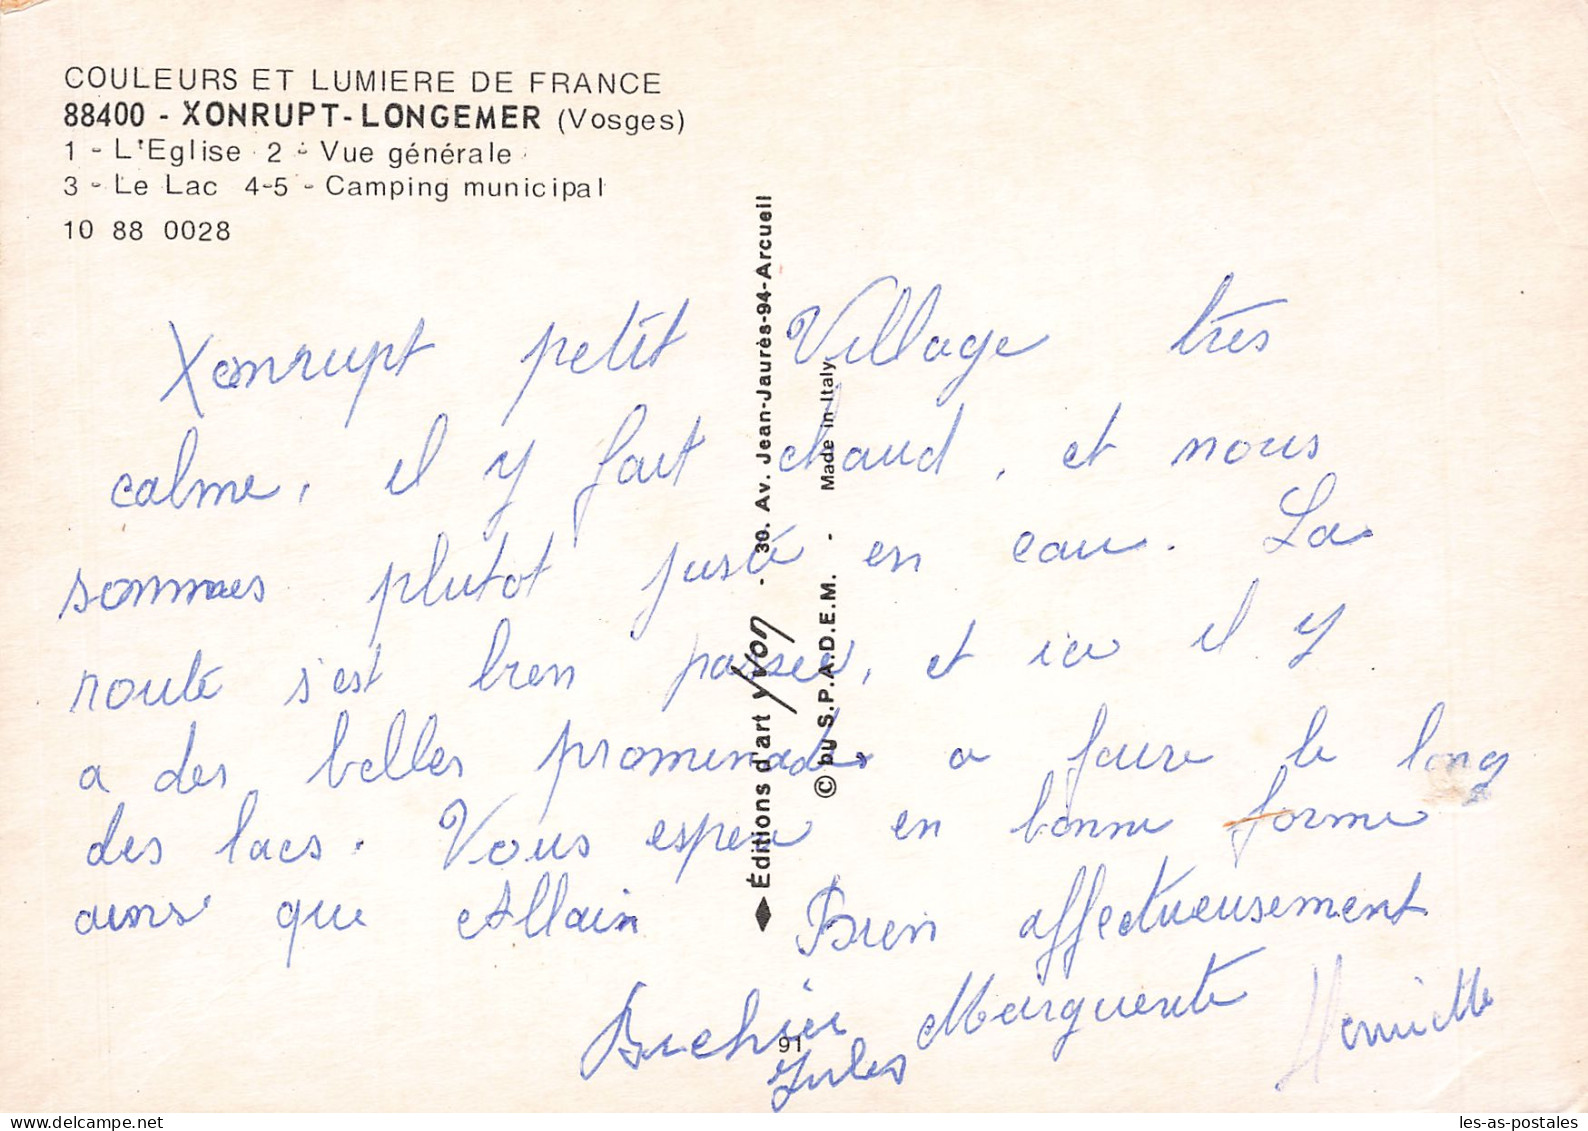 COULEURS ET LUMIERE DE FRANCE
88400 - XONRUPT-LONGEMER (Vosges)
1 - L'Eglise 2 - Vue générale
3 - Le Lac 4-5 - Camping municipal
10 88 0028
Xonrupt petit Village très
calme, il y fait chaud, et nous
sommes plutot juste en eau. La
route s'est bien passée, et ici il y
a des belles promenades a faire le long
des lacs. Vous espere en bonne forme
ainsi que Allain Bien affectueusement
Marguerite Henriette
Jules
Éditions d'art Yvon - 30, Av. Jean-Jaurès-94-Arcueil
© by S.P.A.D.E.M. - Made in Italy
91
les-as-postales